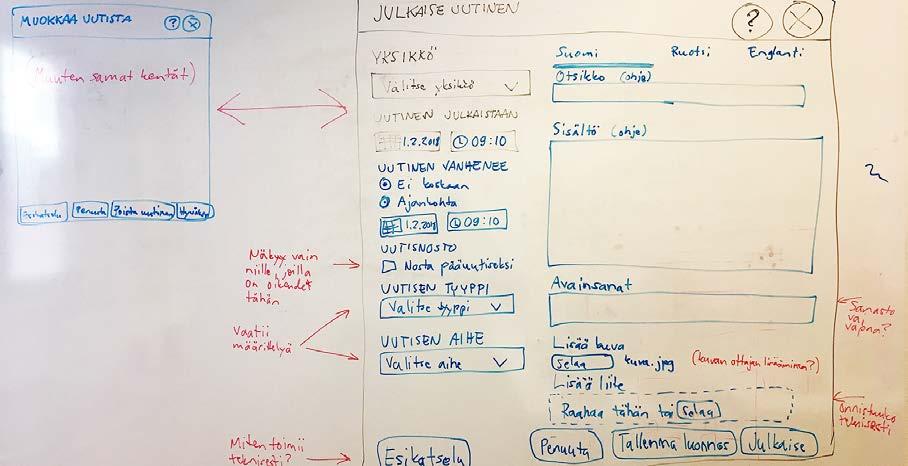 MUOKKAA UUTISTA
?
X
(Muuten samat kentät)
Esikatselu
Peruuta
Poista uutinen
Hyväksy
JULKAISE UUTINEN
?
X
YKSIKKÖ
Valitse yksikkö
UUTINEN JULKAISTAAN
1.2.2018
09:10
UUTINEN VANHENEE
Ei koskaan
Ajankohta
1.2.2018
09:10
UUTISNOSTO
Nosta pääuutiseksi
UUTISEN TYYPPI
Valitse tyyppi
UUTISEN AIHE
Valitse aihe
Esikatselu
Näkyy vain
niille, joilla
on oikeudet
tähän
Vaatii
määrittelyä
Miten toimii
teknisesti?
Suomi
Ruotsi
Englanti
Otsikko (ohje)
Sisältö (ohje)
Avainsanat
Lisää kuva
selaa
kuva.jpg
(kuvan ottajan lisääminen?)
Lisää liite
Raahaa tähän tai selaa
Peruuta
Tallenna luonnos
Julkaise
Sanasto
vai
vapaa?
Onnistuuko
teknisesti